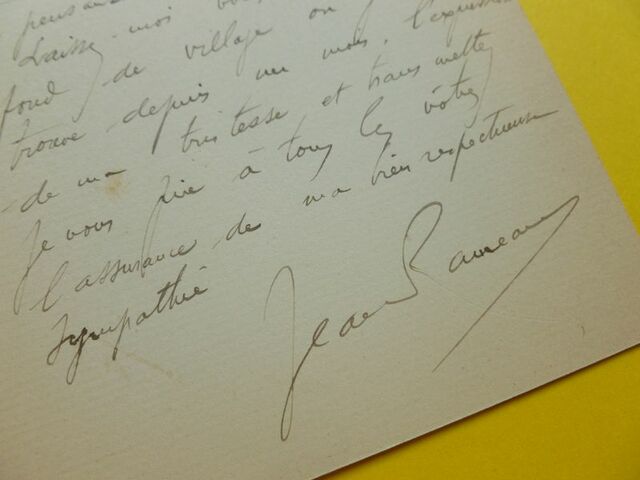 Laissez-moi vous
fond de village où je
trouve depuis un mois, l'expression
de ma tristesse et transmettez
je vous prie à tous les vôtres
l'assurance de ma bien respectueuse
sympathie
Jean Rameau